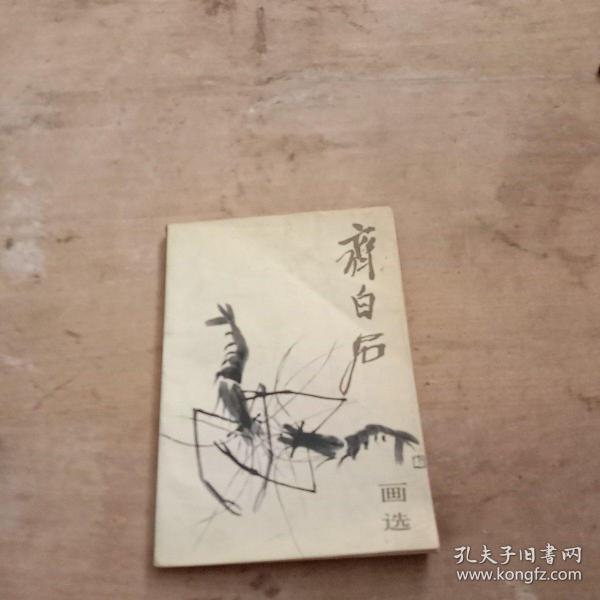 齊白石
画选
孔夫子旧書网
www.kongfz.com